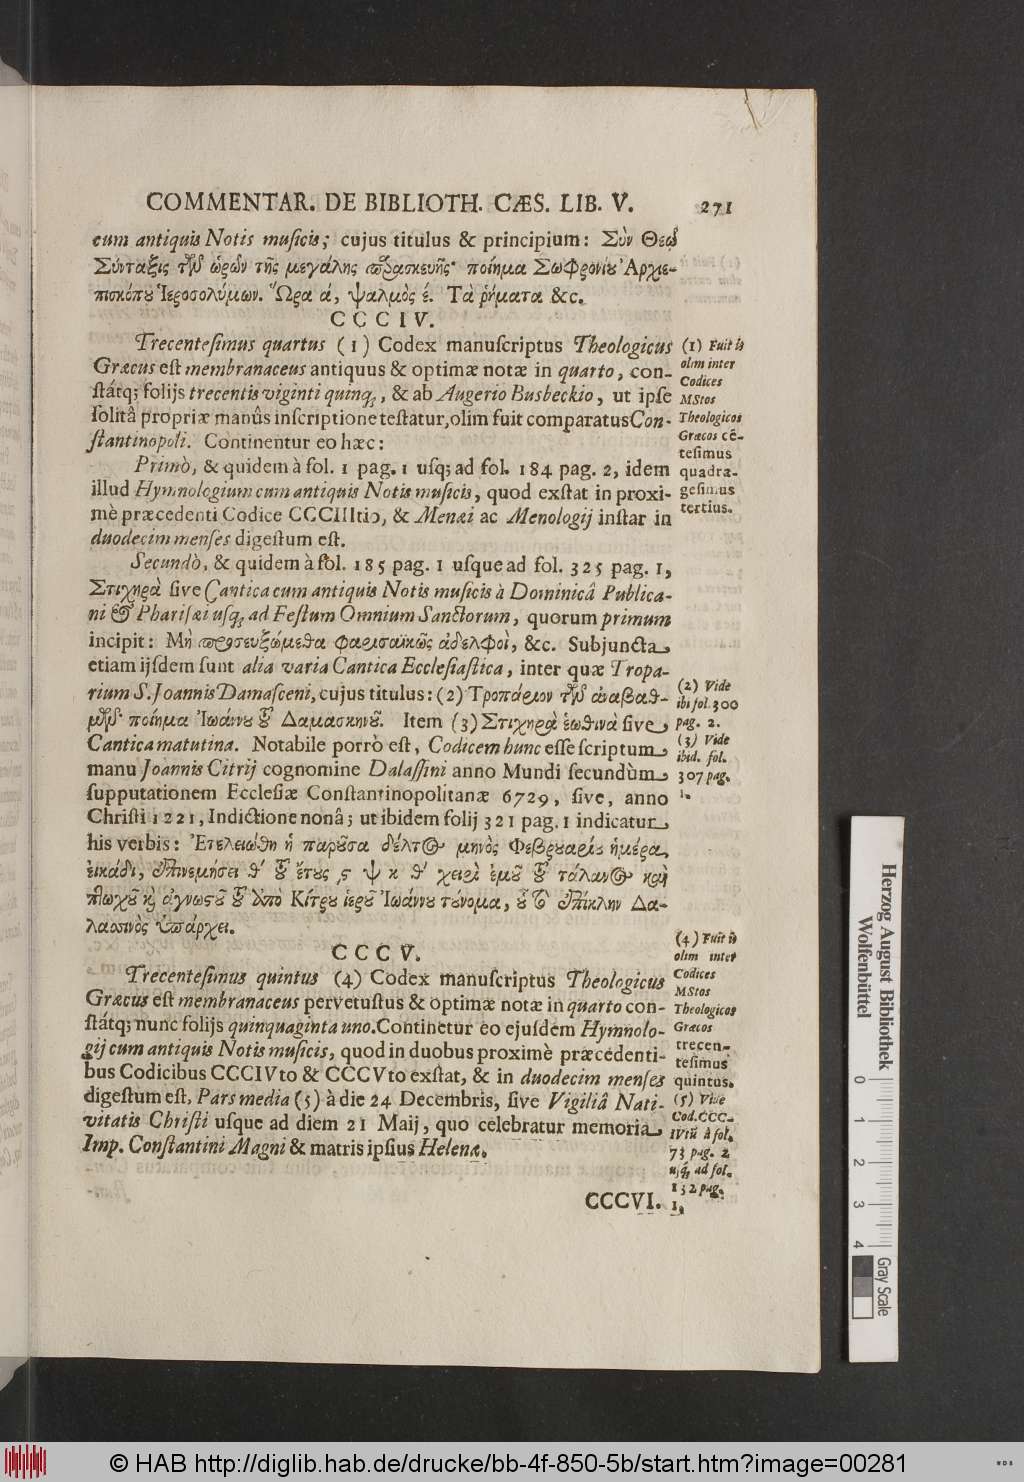 COMMENTAR. DE BIBLIOTH. CÆS. LIB. V. 271
cum antiquis Notis muſicis; cujus titulus & principium: Σὺν Θεῷ
Σύνταξις τῶν ὡρῶν τῆς μεγάλης παρασκευῆς· ποίημα Σωφρονίου Ἀρχιε-
πισκόπου Ἱεροσολύμων. Ὥρα ά, ψαλμὸς έ. Τὰ ῥήματα &c.
CCCIV.
Trecenteſimus quartus (1) Codex manuſcriptus Theologicus
Græcus eſt membranaceus antiquus & optimæ notæ in quarto, con-
ſtátq; folijs trecentis viginti quinq, & ab Augerio Busbeckio, ut ipſe
ſolitâ propriæ manûs inſcriptione teſtatur, olim fuit comparatus Con-
ſtantinopoli. Continentur eo hæc:
Primò, & quidem à fol. 1 pag. 1 uſq; ad fol. 184 pag. 2, idem
illud Hymnologium cum antiquis Notis muſicis, quod exſtat in proxi-
mè præcedenti Codice CCCIIItio, & Menæi ac Menologij inſtar in
duodecim menſes digeſtum eſt.
Secundò, & quidem à fol. 185 pag. 1 uſque ad fol. 325 pag. 1,
Στιχηρὰ ſive Cantica cum antiquis Notis muſicis à Dominicâ Publica-
ni & Phariſæi uſq, ad Feſtum Omnium Sanctorum, quorum primum
incipit: Μὴ προσευξώμεθα φαρισαϊκῶς ἀδελφοὶ, &c. Subjuncta
etiam ijſdem ſunt alia varia Cantica Eccleſiaſtica, inter quæ Tropa-
rium S. Joannis Damaſceni, cujus titulus: (2) Τροπάριον τῶν ἀναβαθ-
μῶν· ποίημα Ἰωάννου τοῦ Δαμασκηνοῦ. Item (3) Στιχηρὰ ἑωθινὰ ſive
Cantica matutina. Notabile porrò eſt, Codicem hunc eſſe ſcriptum
manu Joannis Citrij cognomine Dalaſſini anno Mundi ſecundùm
ſupputationem Eccleſiæ Conſtantinopolitanæ 6729, ſive, anno
Chriſti 1221, Indictione nonâ; ut ibidem folij 321 pag. 1 indicatur
his verbis: Ἐτελειώθη ἡ παροῦσα δέλτος μηνὸς Φεβρουαρίῳ ἡμέρᾳ
εἰκάδι, ἐπινεμήσει θ´ τοῦ ἔτους ͵ς ψ κ θ´ χειρὶ ἐμοῦ τοῦ τάλανος καὶ
πτωχοῦ κỳ ἀγνώστου τοῦ ἀπὸ Κίτρου ἱεροῦ Ἰωάννου τοὔνομα, οὗ τὸ ἐπίκλην Δα-
λασσινὸς ὑπάρχει.
CCCV.
Trecenteſimus quintus (4) Codex manuſcriptus Theologicus
Græcus eſt membranaceus pervetuſtus & optimæ notæ in quarto con-
ſtátq; nunc folijs quinquaginta uno. Continetur eo ejuſdem Hymnolo-
gij cum antiquis Notis muſicis, quod in duobus proximè præcedenti-
bus Codicibus CCCIVto & CCCVto exſtat, & in duodecim menſes
digeſtum eſt, Pars media (5) à die 24 Decembris, ſive Vigiliâ Nati-
vitatis Chriſti uſque ad diem 21 Maij, quo celebratur memoria
Imp. Conſtantini Magni & matris ipſius Helenæ.
CCCVI.
(1) Fuit is
olim inter
Codices
MStos
Theologicos
Græcos cē-
teſimus
quadra-
geſimus
tertius.
(2) Vide
ibi fol. 300
pag. 2.
(3) Vide
ibid. fol.
307 pag.
1.
(4) Fuit is
olim inter
Codices
MStos
Theologicos
Græcos
trecen-
teſimus
quintus.
(5) Vide
Cod. CCC-
IVtū à fol.
73 pag. 2
uſq, ad fol.
132 pag.
1,
Herzog August Bibliothek
Wolfenbüttel
0 1 2 3 4
Gray Scale
© HAB http://diglib.hab.de/drucke/bb-4f-850-5b/start.htm?image=00281